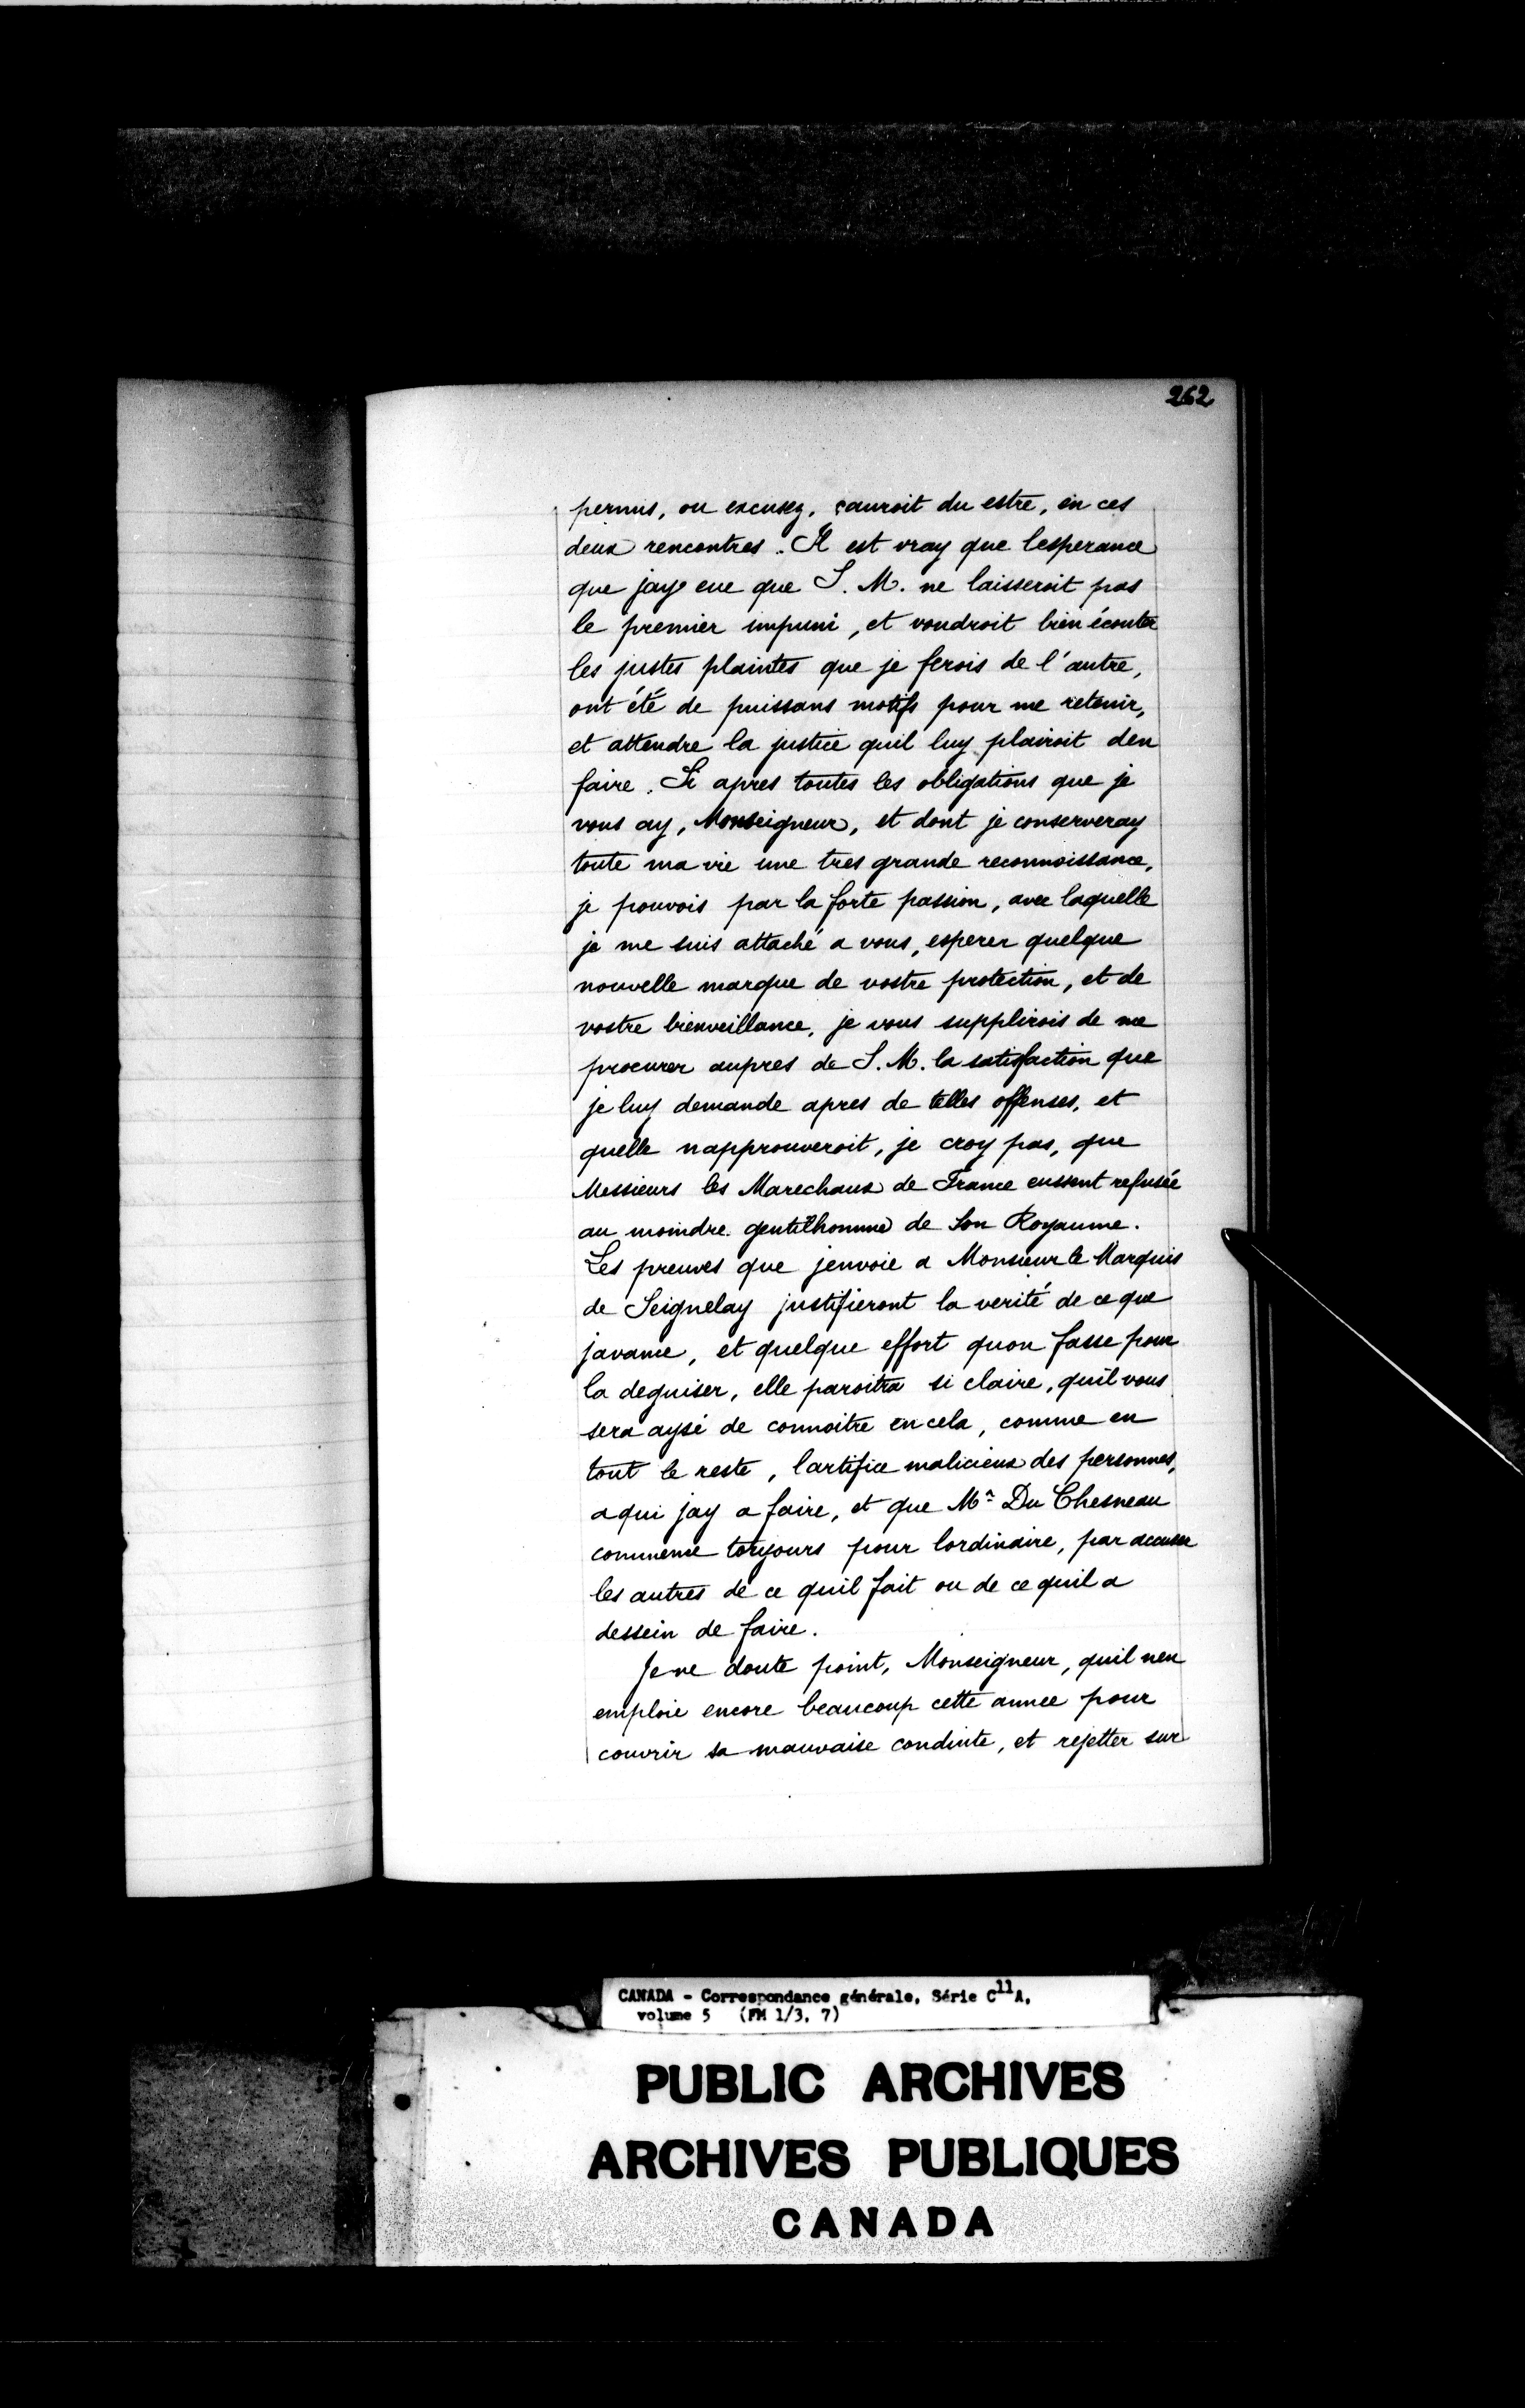 262
permis, ou excusez, çauroit du estre, en ces
deux rencontres. Il est vray que lesperance
que jaye eue que S. M. ne laisseroit pas
le premier impuni, et voudroit bien écouter
les justes plaintes que je ferois de l'autre,
ont été de puissans motifs pour me retenir,
et attendre la justice quil luy plairoit den
faire. Si apres toutes les obligations que je
vous ay, Monseigneur, et dont je conserveray
toute ma vie une tres grande reconnoissance,
je pouvois par la forte passion, avec laquelle
je me suis attaché a vous, esperer quelque
nouvelle marque de vostre protection, et de
vostre bienveillance, je vous supplirois de me
procurer aupres de S. M. la satisfaction que
je luy demande apres de telles offenses, et
quelle napprouveroit, je croy pas, que
Messieurs les Marechaux de France eussent refusée
au moindre gentilhomme de Son Royaume.
Les preuves que jenvoie a Monsieur le Marquis
de Seignelay justifieront la verité de ce que
javance, et quelque effort quon fasse pour
la deguiser, elle paroitra si claire, quil vous
sera aysé de connoitre en cela, comme en
tout le reste, lartifice malicieux des personnes,
a qui jay a faire, et que Mr Du Chesneau
commence toujours pour lordinaire, par accuser
les autres de ce quil fait ou de ce quil a
dessein de faire.
Je ne doute point, Monseigneur, quil nen
emploie encore beaucoup cette annee pour
couvrir sa mauvaise conduite, et rejetter sur
CANADA - Correspondance générale, Série C11A,
volume 5 (FM 1/3, 7)
PUBLIC ARCHIVES
ARCHIVES PUBLIQUES
CANADA